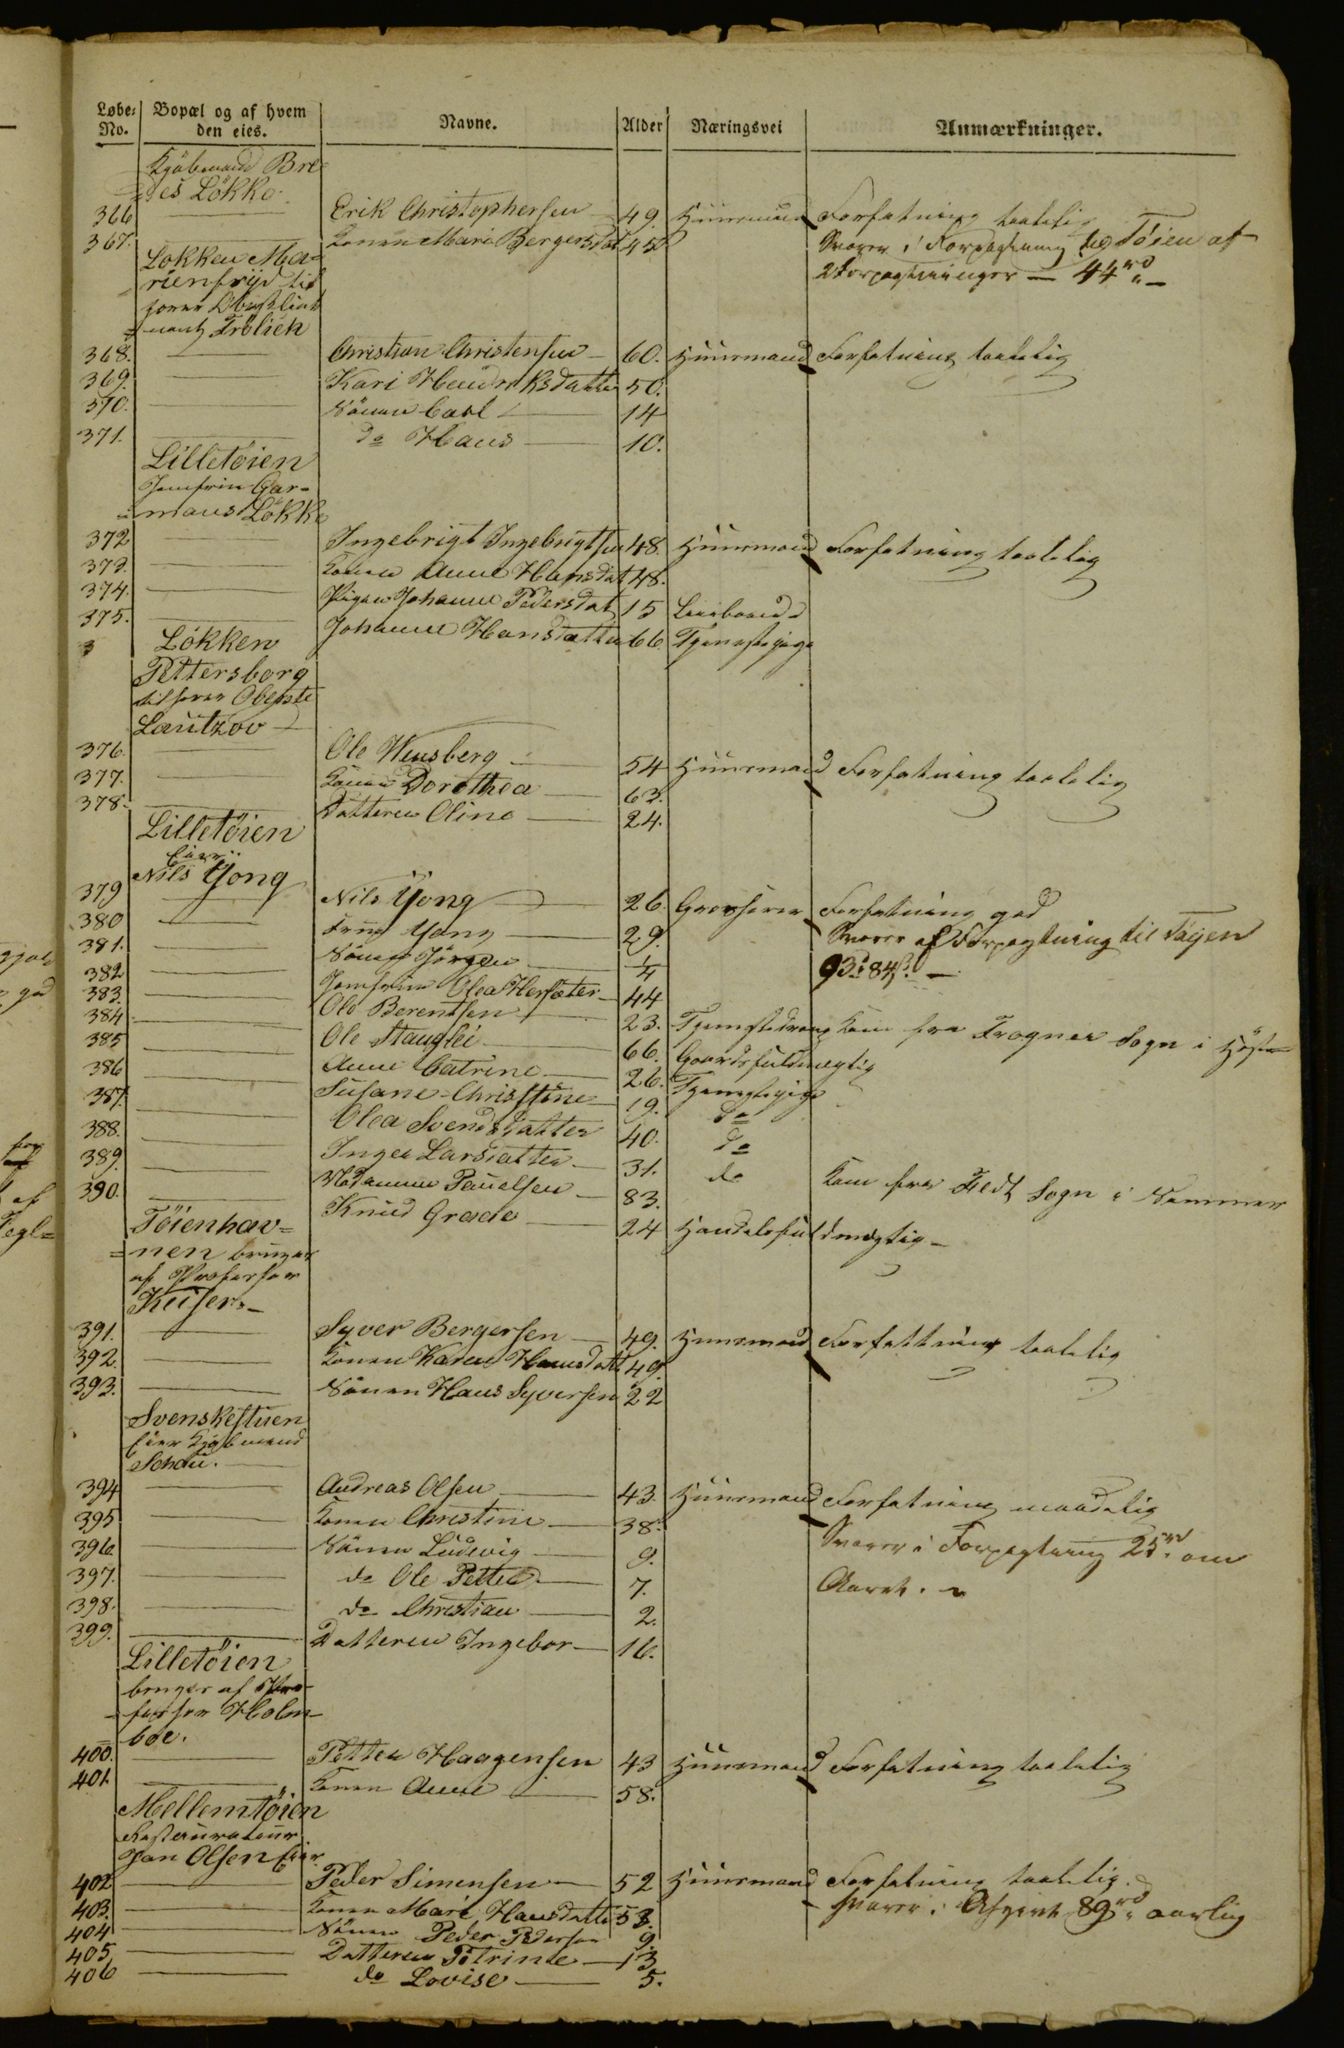 Løbe- No. Bopæl og af hvem den eies. Navne. Alder Næringsvei Anmærkninger.
Kjøbmand Bre-
des Løkke.
366 Erik Christophersen 49. Huusmand Forfatning taalelig
367. Konen Maria Bergersdat 45. Svarer i Forpagtning til Tøien af
Løkken Ma- 2 Forpagtninger — 44 rd „ —
rienfryd til
hører Obristlieut
nant Frölich
368. Christian Christensen 60. Huusmand Forfatning taalelig
369. Kari Hendriksdatter 50.
370. Sönnen Carl 14
371. do Hans 10.
Lilletöien
Jomfrue Gar-
mans Lökke
372 Ingebrigt Ingebrigtsen 48. Huusmand Forfatning taalelig
373. Konen Anne Hansdat 48.
374. Pigen Johanne Pedersdat 15
375. Johanne Hansdatter 66 Tjenestepige
Lökken
Pettersborg
tilhører Oberste
Lautzov
376. Ole Wensberg 54 Huusmand Forfatning taalelig
377. Konen Dorothea 63.
378. Datteren Oline 24.
Lilletöien
Eier
Nils Yong
379 Nils Yong 26. Grosserer Forfatning god
380 Frue Yong 29. Svarer af Forpagtning til Tøyen
381. Sönnen Jörgen 1/4 93 84 ß. —
382 Jomfrue Olea Hersæter 44
383. Ole Berentsen 23. Tjenestedreng Kom fra Frogner Sogn i Høst
384 Ole Stauglei 66. Gaardsfuldmegtig
385 Anne Catrine 26. Tjenestepige
386 Susane Christine 19. do
387. Olea Svendsdatter 40. do
388. Inger Larsdatter 31. do Kom fra Fedt Sogn i Sommer
389. Madamme Pauelsen 83.
390. Knud Grade 24 Handelsfuldmægtig
Töienhav-
nen bruges
af Professor
Keiser.
391. Syver Bergersen 49. Huusmand Forfattning taalelig
392. Konen Karen Hansdatt 49.
393. Sönnen Hans Syversen 22
Svenskestuen
Eier Kjøbmand
Schou.
394 Andreas Olsen 43. Huusmand Forfatning maadelig
395 Konen Christine 38. Svarer i Forpagtning 25 rd. om
396. Sönnen Ludevig 9. Aaret.
397. do Ole Petter 7.
398. do Christian 2.
399. Datteren Ingebor 16.
Lilletöien
bruges af Pro-
fessor Holm-
boe.
400. Petter Haagensen 43 Huusmand Forfatning taalelig
401. Konen Anne 58.
Mellemtöien
Restaurateur
Jan Olsen Eier
402 Peder Simensen 52 Huusmand Forfatning taalelig.
403. Konen Mari Hansdatter 53. Svarer i Afgivt 89 rd. aarlig
404 Sönnen Peder Pedersen 9.
405 Datteren Petrine 13
406 do Lovise 5.